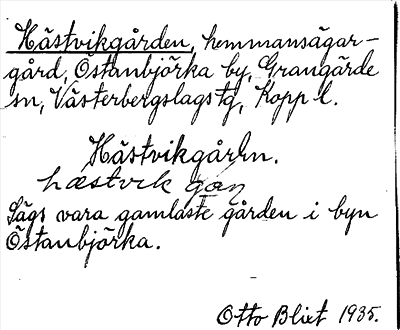 Hästvikgården, hemmansägar-
gård, Östanbjörka by, Grangärde
sn, Västerbergslags tg, Kopp l.
Hästvikgårn.
hæstvik
Sägs vara gamlaste gården i byn
Östanbjörka.
Otto Blixt 1935.